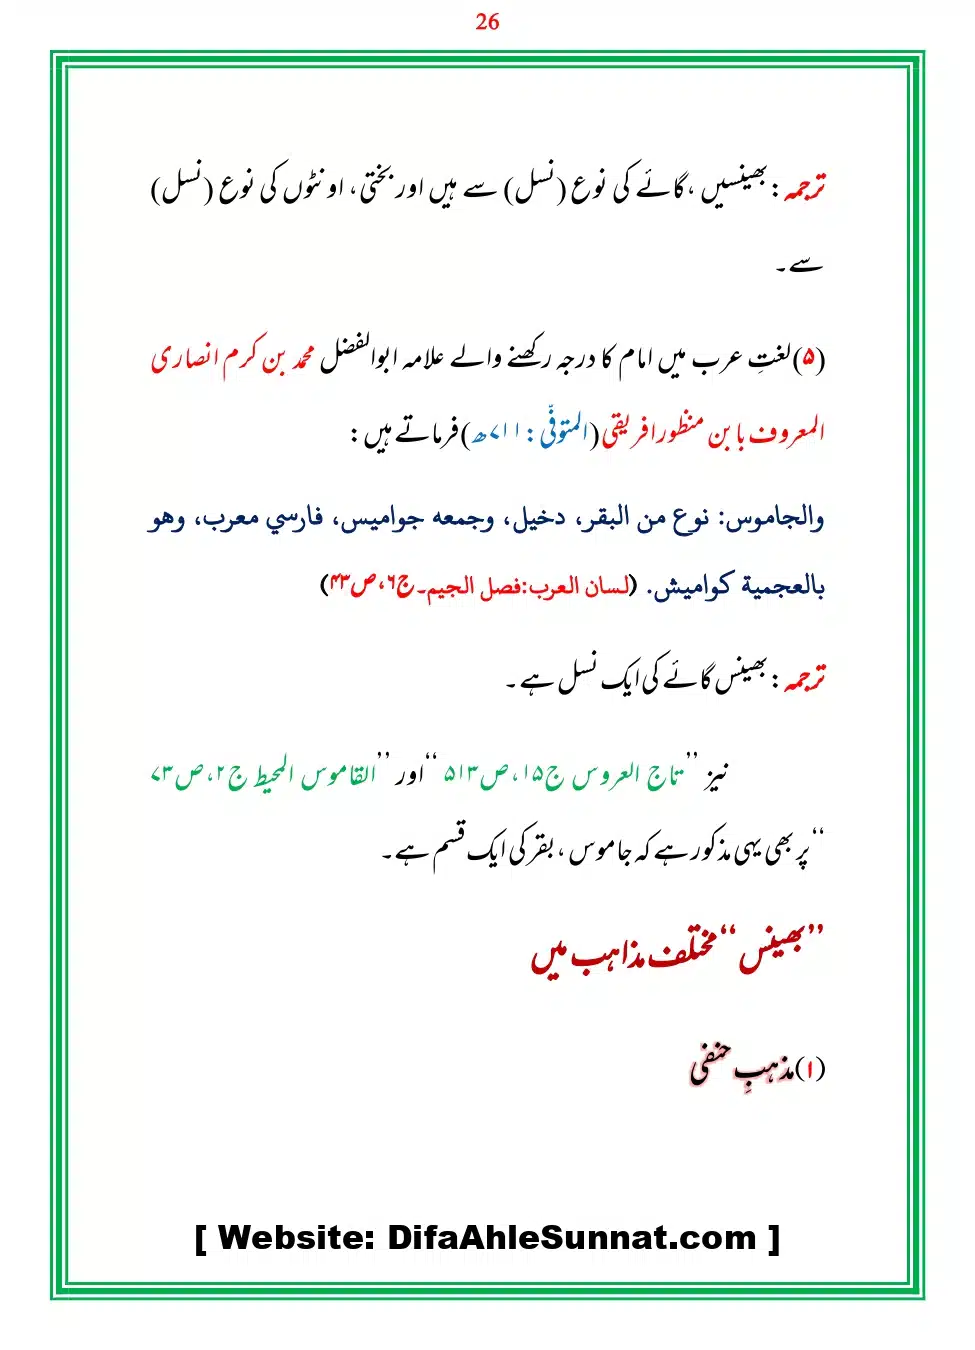 26
ترجمہ: بھینسیں، گائے کی نوع (نسل) سے ہیں اور بختی، اونٹوں کی نوع (نسل)
سے۔
(۵) لغتِ عرب میں امام کا درجہ رکھنے والے علامہ ابوالفضل محمد بن کرم انصاری
المعروف بابن منظور افریقی (المتوفّٰی: ۷۱۱ھ) فرماتے ہیں:
والجاموس: نوع من البقر، دخيل، وجمعه جواميس، فارسي معرب، وهو
بالعجمية كواميش. (لسان العرب:فصل الجيم۔ج۶،ص۴۳)
ترجمہ: بھینس گائے کی ایک نسل ہے۔
نیز ’’تاج العروس ج۱۵،ص۵۱۳‘‘ اور ’’القاموس المحیط ج۲،ص۷۳
‘‘ پر بھی یہی مذکور ہے کہ جاموس، بقر کی ایک قسم ہے۔
’’بھینس‘‘ مختلف مذاہب میں
(۱) مذہبِ حنفی
[ Website: DifaAhleSunnat.com ]